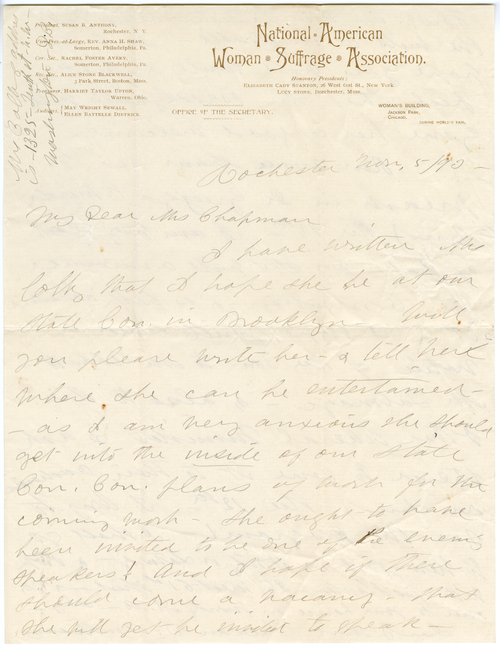 President, SUSAN B. ANTHONY,
Rochester, N. Y.
Vice-Pres.-at-Large, REV. ANNA H. SHAW,
Somerton, Philadelphia, Pa.
RACHEL FOSTER AVERY,
Somerton, Philadelphia, Pa.
ALICE STONE BLACKWELL,
3 Park Street, Boston, Mass.
HARRIET TAYLOR UPTON,
Warren, Ohio.
MAY WRIGHT SEWALL,
ELLEN BATTELLE DIETRICK.
National-American
Woman Suffrage Association.
Honorary Presidents:
ELIZABETH CADY STANTON, 26 West 61st St., New York.
LUCY STONE, Dorchester, Mass.
OFFICE OF THE SECRETARY.
WOMAN'S BUILDING,
JACKSON PARK,
CHICAGO.
DURING WORLD'S FAIR.
Mrs
is - 1325-
Washington
Rochester Nov, 5/93 -
My Dear Mrs Chapman
I have written Mrs
Colby that I hope she be at our
State Con. in Brooklyn - Will
you please write her - & tell her
where she can be entertained -
- as I am very anxious she should
get into the inside of our State
Con. Con. plans of work for the
coming work - She ought to have
been invited to be one of the evening
speakers! And I hope if there
should come a vacancy - that
she will yet be invited to speak -